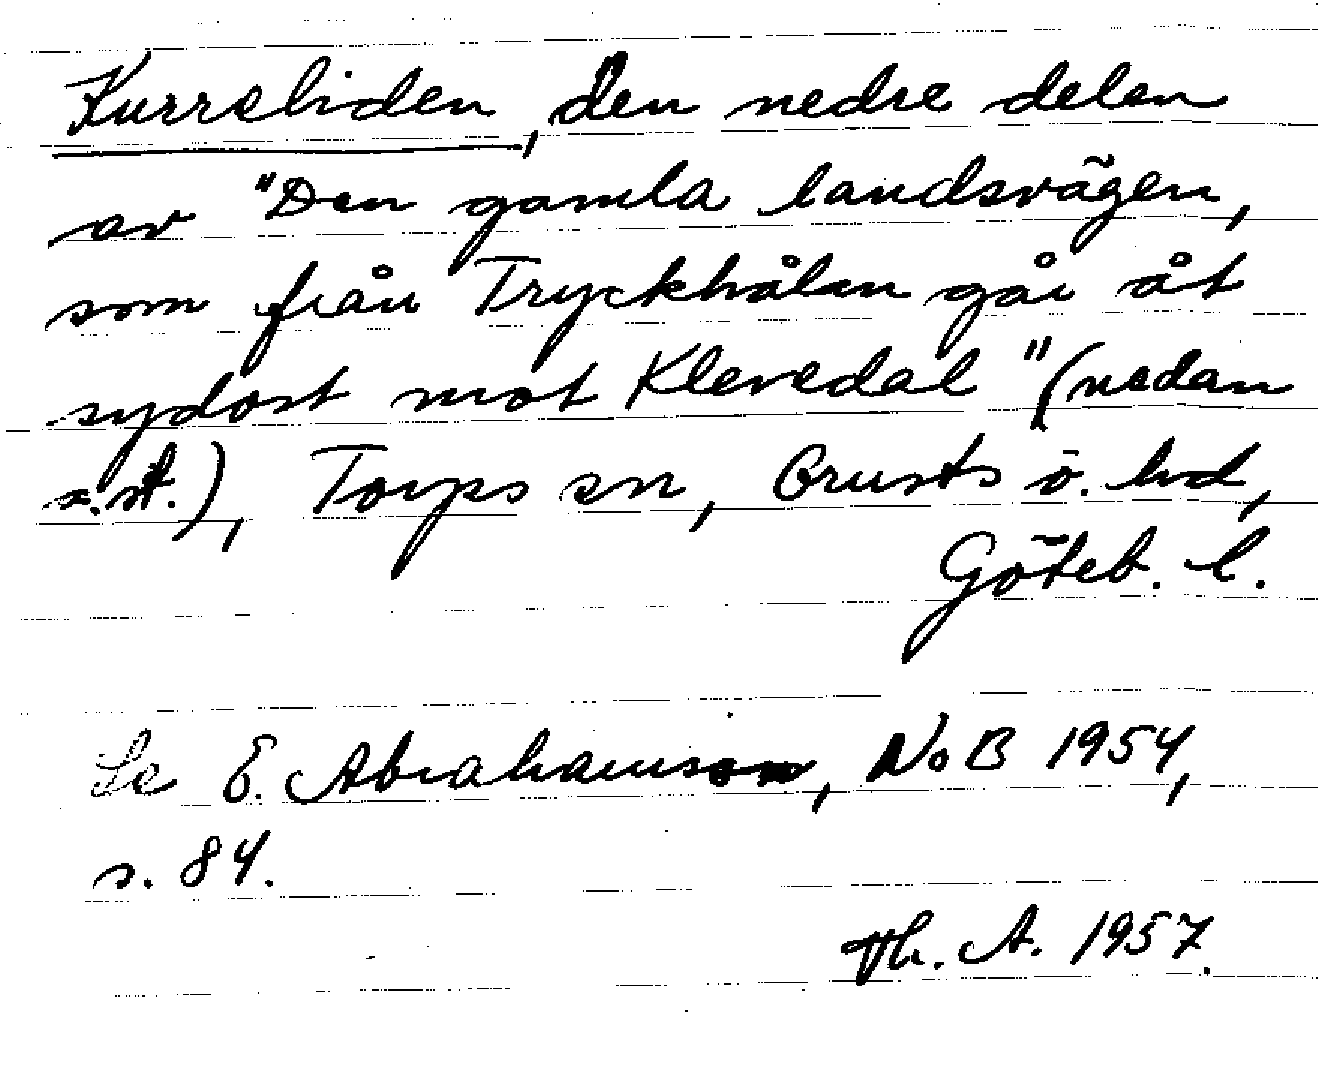 Kurreliden, den nedre delen
av "Den gamla landsvägen,
som från Tryckhålan går åt
sydost mot Klevedal" (nedan
a.st.), Torps sn, Orusts ö. hd,
Göteb. l.
Se E. Abrahamson, NoB 1954,
s. 84.
Th. A. 1957.